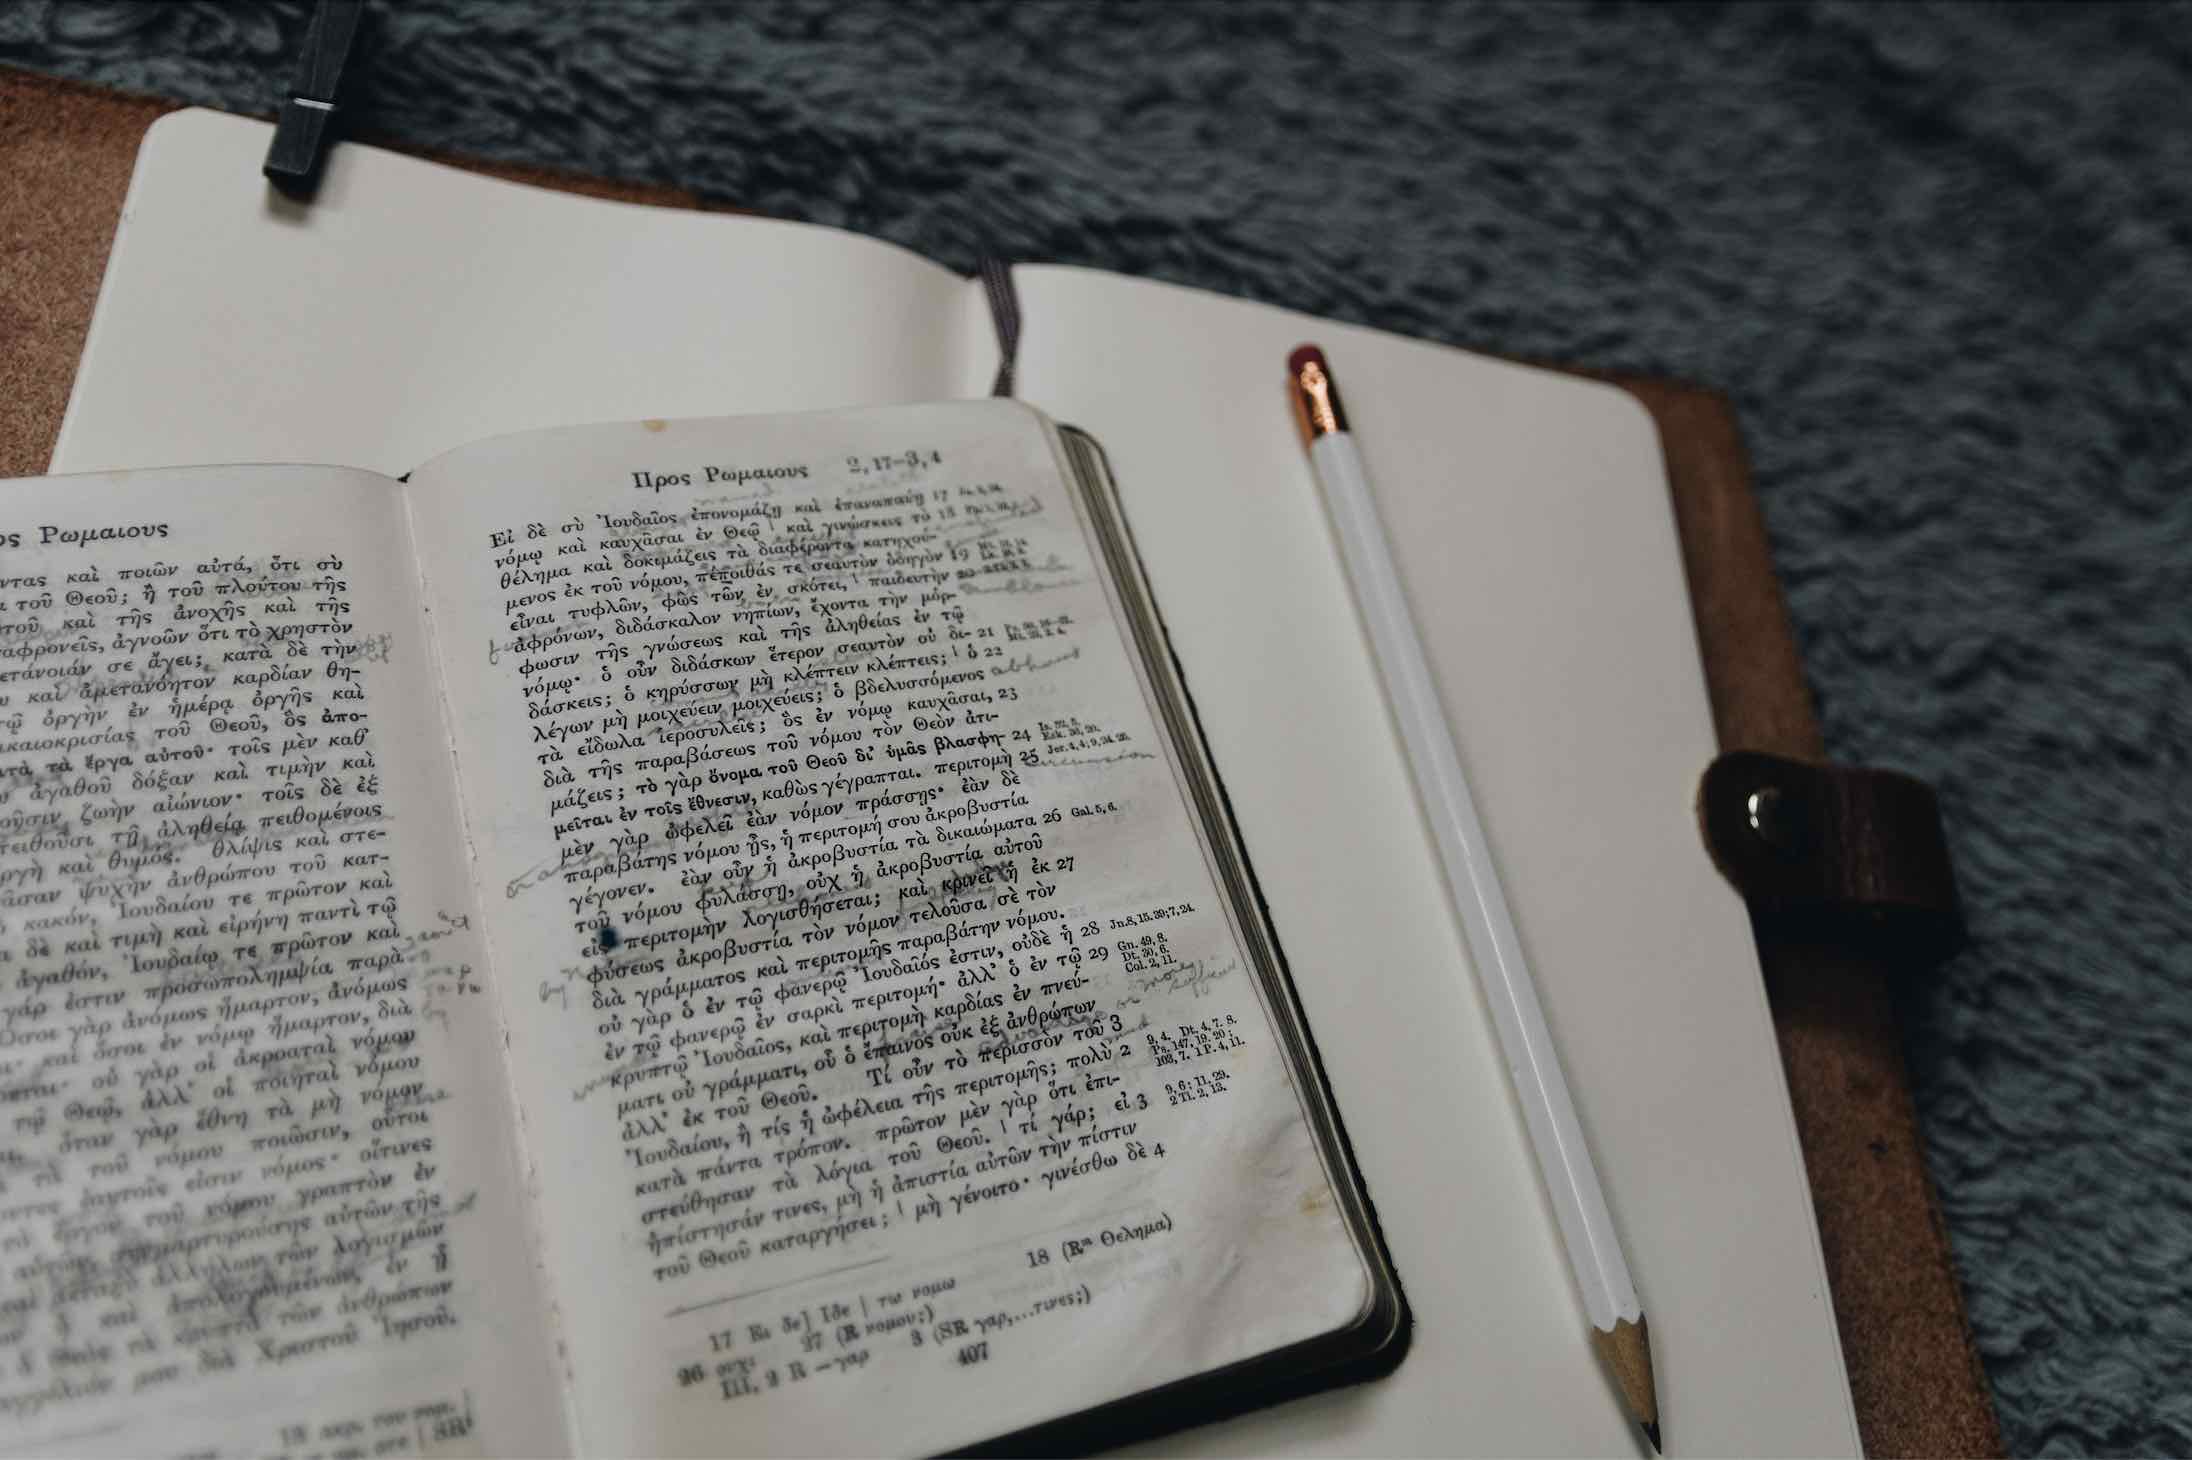 ος Ρωμαιους
ντας καὶ ποιῶν αὐτά, ὅτι σὺ
τοῦ Θεοῦ; ἢ τοῦ πλούτου τῆς
τοῦ καὶ τῆς ἀνοχῆς καὶ τῆς
αφρονεῖς, ἀγνοῶν ὅτι τὸ χρηστὸν
ετάνοιάν σε ἄγει; κατὰ δὲ τὴν
καὶ ἀμετανόητον καρδίαν θη-
ὀργὴν ἐν ἡμέρᾳ ὀργῆς καὶ
ικαιοκρισίας τοῦ Θεοῦ, ὃς ἀπο-
τὰ ἔργα αὐτοῦ· τοῖς μὲν καθ’
ἀγαθοῦ δόξαν καὶ τιμὴν καὶ
οῦσιν, ζωὴν αἰώνιον· τοῖς δὲ ἐξ
πειθοῦσι τῇ ἀληθείᾳ πειθομένοις
ργὴ καὶ θυμός. θλίψις καὶ στε-
ᾶσαν ψυχὴν ἀνθρώπου τοῦ κατ-
κακόν, Ἰουδαίου τε πρῶτον καὶ
δὲ καὶ τιμὴ καὶ εἰρήνη παντὶ τῷ
ἀγαθόν, Ἰουδαίῳ τε πρῶτον καὶ
γάρ ἐστιν προσωπολημψία παρὰ
Ὅσοι γὰρ ἀνόμως ἥμαρτον, ἀνόμως
καὶ ὅσοι ἐν νόμῳ ἥμαρτον, διὰ
οὐ γὰρ οἱ ἀκροαταὶ νόμου
τῷ Θεῷ, ἀλλ’ οἱ ποιηταὶ νόμου
ὅταν γὰρ ἔθνη τὰ μὴ νόμον
τὰ τοῦ νόμου ποιῶσιν, οὗτοι
ἑαυτοῖς εἰσιν νόμος· οἵτινες
τὸ ἔργον τοῦ νόμου γραπτὸν ἐν
συμμαρτυρούσης αὐτῶν τῆς
μεταξὺ ἀλλήλων τῶν λογισμῶν
ἢ καὶ ἀπολογουμένων, ἐν ᾗ
ὁ Θεὸς τὰ κρυπτὰ τῶν ἀνθρώπων
μου διὰ Χριστοῦ Ἰησοῦ.
Προς Ρωμαιους 2, 17–3, 4
Εἰ δὲ σὺ Ἰουδαῖος ἐπονομάζῃ καὶ ἐπαναπαύῃ 17
νόμῳ καὶ καυχᾶσαι ἐν Θεῷ | καὶ γινώσκεις τὸ 18
θέλημα καὶ δοκιμάζεις τὰ διαφέροντα κατηχού-
μενος ἐκ τοῦ νόμου, πέποιθάς τε σεαυτὸν ὁδηγὸν 19
εἶναι τυφλῶν, φῶς τῶν ἐν σκότει, | παιδευτὴν 20
ἀφρόνων, διδάσκαλον νηπίων, ἔχοντα τὴν μόρ-
φωσιν τῆς γνώσεως καὶ τῆς ἀληθείας ἐν τῷ
νόμῳ· ὁ οὖν διδάσκων ἕτερον σεαυτὸν οὐ δι- 21
δάσκεις; ὁ κηρύσσων μὴ κλέπτειν κλέπτεις; | ὁ 22
λέγων μὴ μοιχεύειν μοιχεύεις; ὁ βδελυσσόμενος
τὰ εἴδωλα ἱεροσυλεῖς; ὃς ἐν νόμῳ καυχᾶσαι, 23
διὰ τῆς παραβάσεως τοῦ νόμου τὸν Θεὸν ἀτι-
μάζεις; τὸ γὰρ ὄνομα τοῦ Θεοῦ δι’ ὑμᾶς βλασφη- 24
μεῖται ἐν τοῖς ἔθνεσιν, καθὼς γέγραπται. περιτομὴ 25 Jer. 4, 4; 9, 24. 25.
μὲν γὰρ ὠφελεῖ ἐὰν νόμον πράσσῃς· ἐὰν δὲ
παραβάτης νόμου ᾖς, ἡ περιτομή σου ἀκροβυστία
γέγονεν. ἐὰν οὖν ἡ ἀκροβυστία τὰ δικαιώματα 26 Gal. 5, 6.
τοῦ νόμου φυλάσσῃ, οὐχ ἡ ἀκροβυστία αὐτοῦ
εἰς περιτομὴν λογισθήσεται; καὶ κρινεῖ ἡ ἐκ 27
φύσεως ἀκροβυστία τὸν νόμον τελοῦσα σὲ τὸν
διὰ γράμματος καὶ περιτομῆς παραβάτην νόμου.
οὐ γὰρ ὁ ἐν τῷ φανερῷ Ἰουδαῖός ἐστιν, οὐδὲ ἡ 28 Jn. 8, 15. 39; 7, 24.
ἐν τῷ φανερῷ ἐν σαρκὶ περιτομή· ἀλλ’ ὁ ἐν τῷ 29 Gn. 49, 8. Dt. 30, 6. Col. 2, 11.
κρυπτῷ Ἰουδαῖος, καὶ περιτομὴ καρδίας ἐν πνεύ-
ματι οὐ γράμματι, οὗ ὁ ἔπαινος οὐκ ἐξ ἀνθρώπων
ἀλλ’ ἐκ τοῦ Θεοῦ. Τί οὖν τὸ περισσὸν τοῦ 3
Ἰουδαίου, ἢ τίς ἡ ὠφέλεια τῆς περιτομῆς; πολὺ 2 9, 4. Dt. 4, 7. 8. Ps. 147, 19. 20; 103, 7. 1 P. 4, 11.
κατὰ πάντα τρόπον. πρῶτον μὲν γὰρ ὅτι ἐπι-
στεύθησαν τὰ λόγια τοῦ Θεοῦ. | τί γάρ; εἰ 3 9, 6; 11, 29. 2 Ti. 2, 13.
ἠπίστησάν τινες, μὴ ἡ ἀπιστία αὐτῶν τὴν πίστιν
τοῦ Θεοῦ καταργήσει; | μὴ γένοιτο· γινέσθω δὲ 4
17 Ει δε] Ιδε | τω νομω 18 (Rᵐ Θελημα)
26 ουχι 27 (R νομου;) 3 (SR γαρ,...τινες;)
III, 2 R –γαρ
407